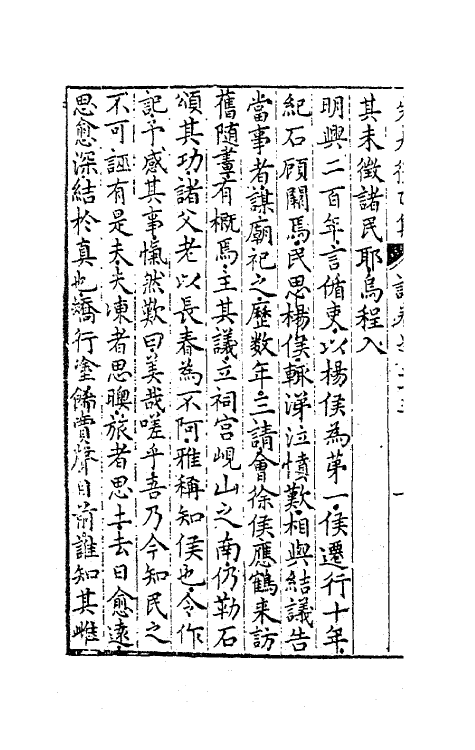 其未徵諸民耶烏程入
明興二百年言循吏以楊侯為第一侯遷行十年
紀石顧闕焉民思楊侯輒涕泣憤歎相與結議告
當事者謀廟祀之歷数年三請會徐侯應鶴来訪
舊隨畫有概焉主其議立祠宫峴山之南仍勒石
頌其功諸父老以長春為不阿雅稱知侯也令作
記予感其事愾然歎曰美哉嗟乎吾乃今知民之
不可誣有是夫夫凍者思䁱旅者思土去日愈遠
思愈深結於真也矯行塗餙賈聲目前誰知其雌